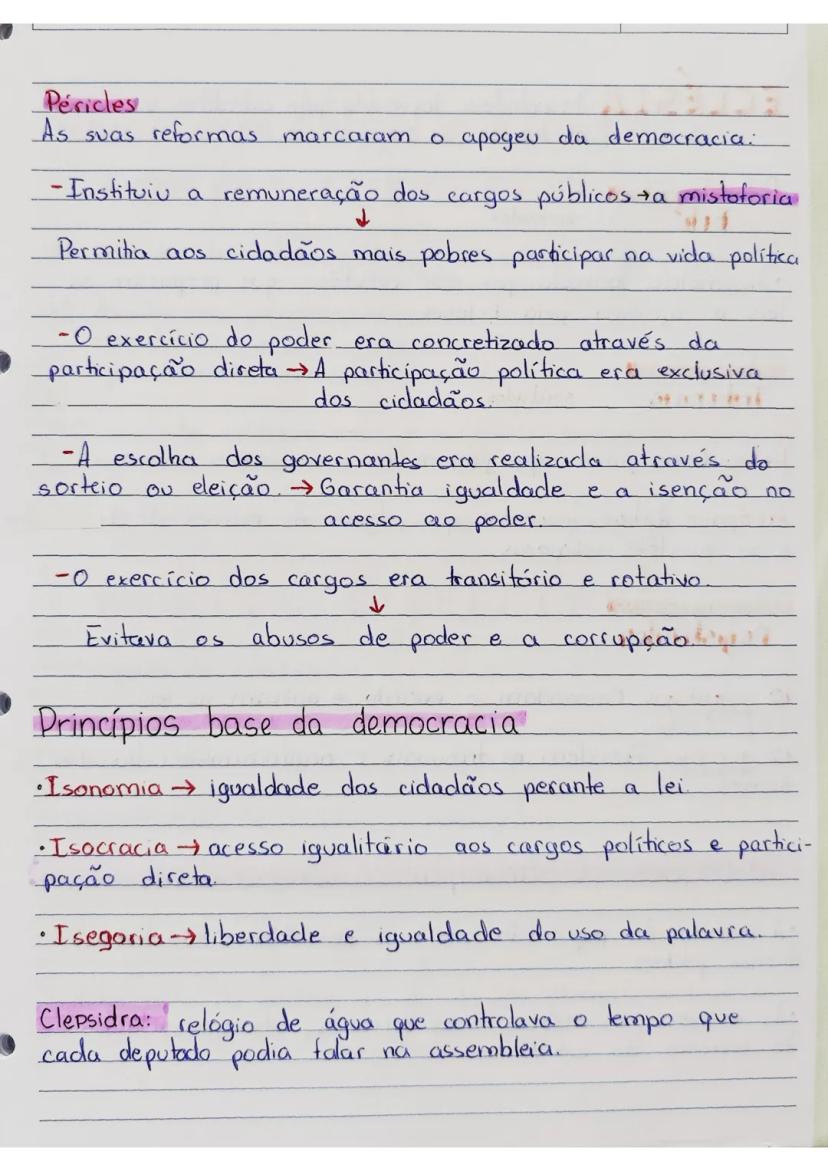 Péricles
As suas reformas marcaram o apogeu da democracia:
-Instituiu a remuneração dos cargos públicos→a mistoforia
↓
Permitia aos cidadãos mais pobres participar na vida política
-O exercício do poder era concretizado através da
participação direta→A participação política era exclusiva
dos cidadãos.
-A escolha dos governantes era realizada através do
sorteio ou eleição.→Garantia igualdade e a isenção no
acesso ao poder.
-O exercício dos cargos era transitório e rotativo.
↓
Evitava os abusos de poder e a corrupção.
Princípios base da democracia
•Isonomia→ igualdade dos cidadãos perante a lei
•Isocracia→acesso igualitário aos cargos políticos e partici-
pação direta.
•Isegoria→liberdade e igualdade do uso da palavra.
Clepsidra: relógio de água que controlava o tempo que
cada deputado podia falar na assembleia.